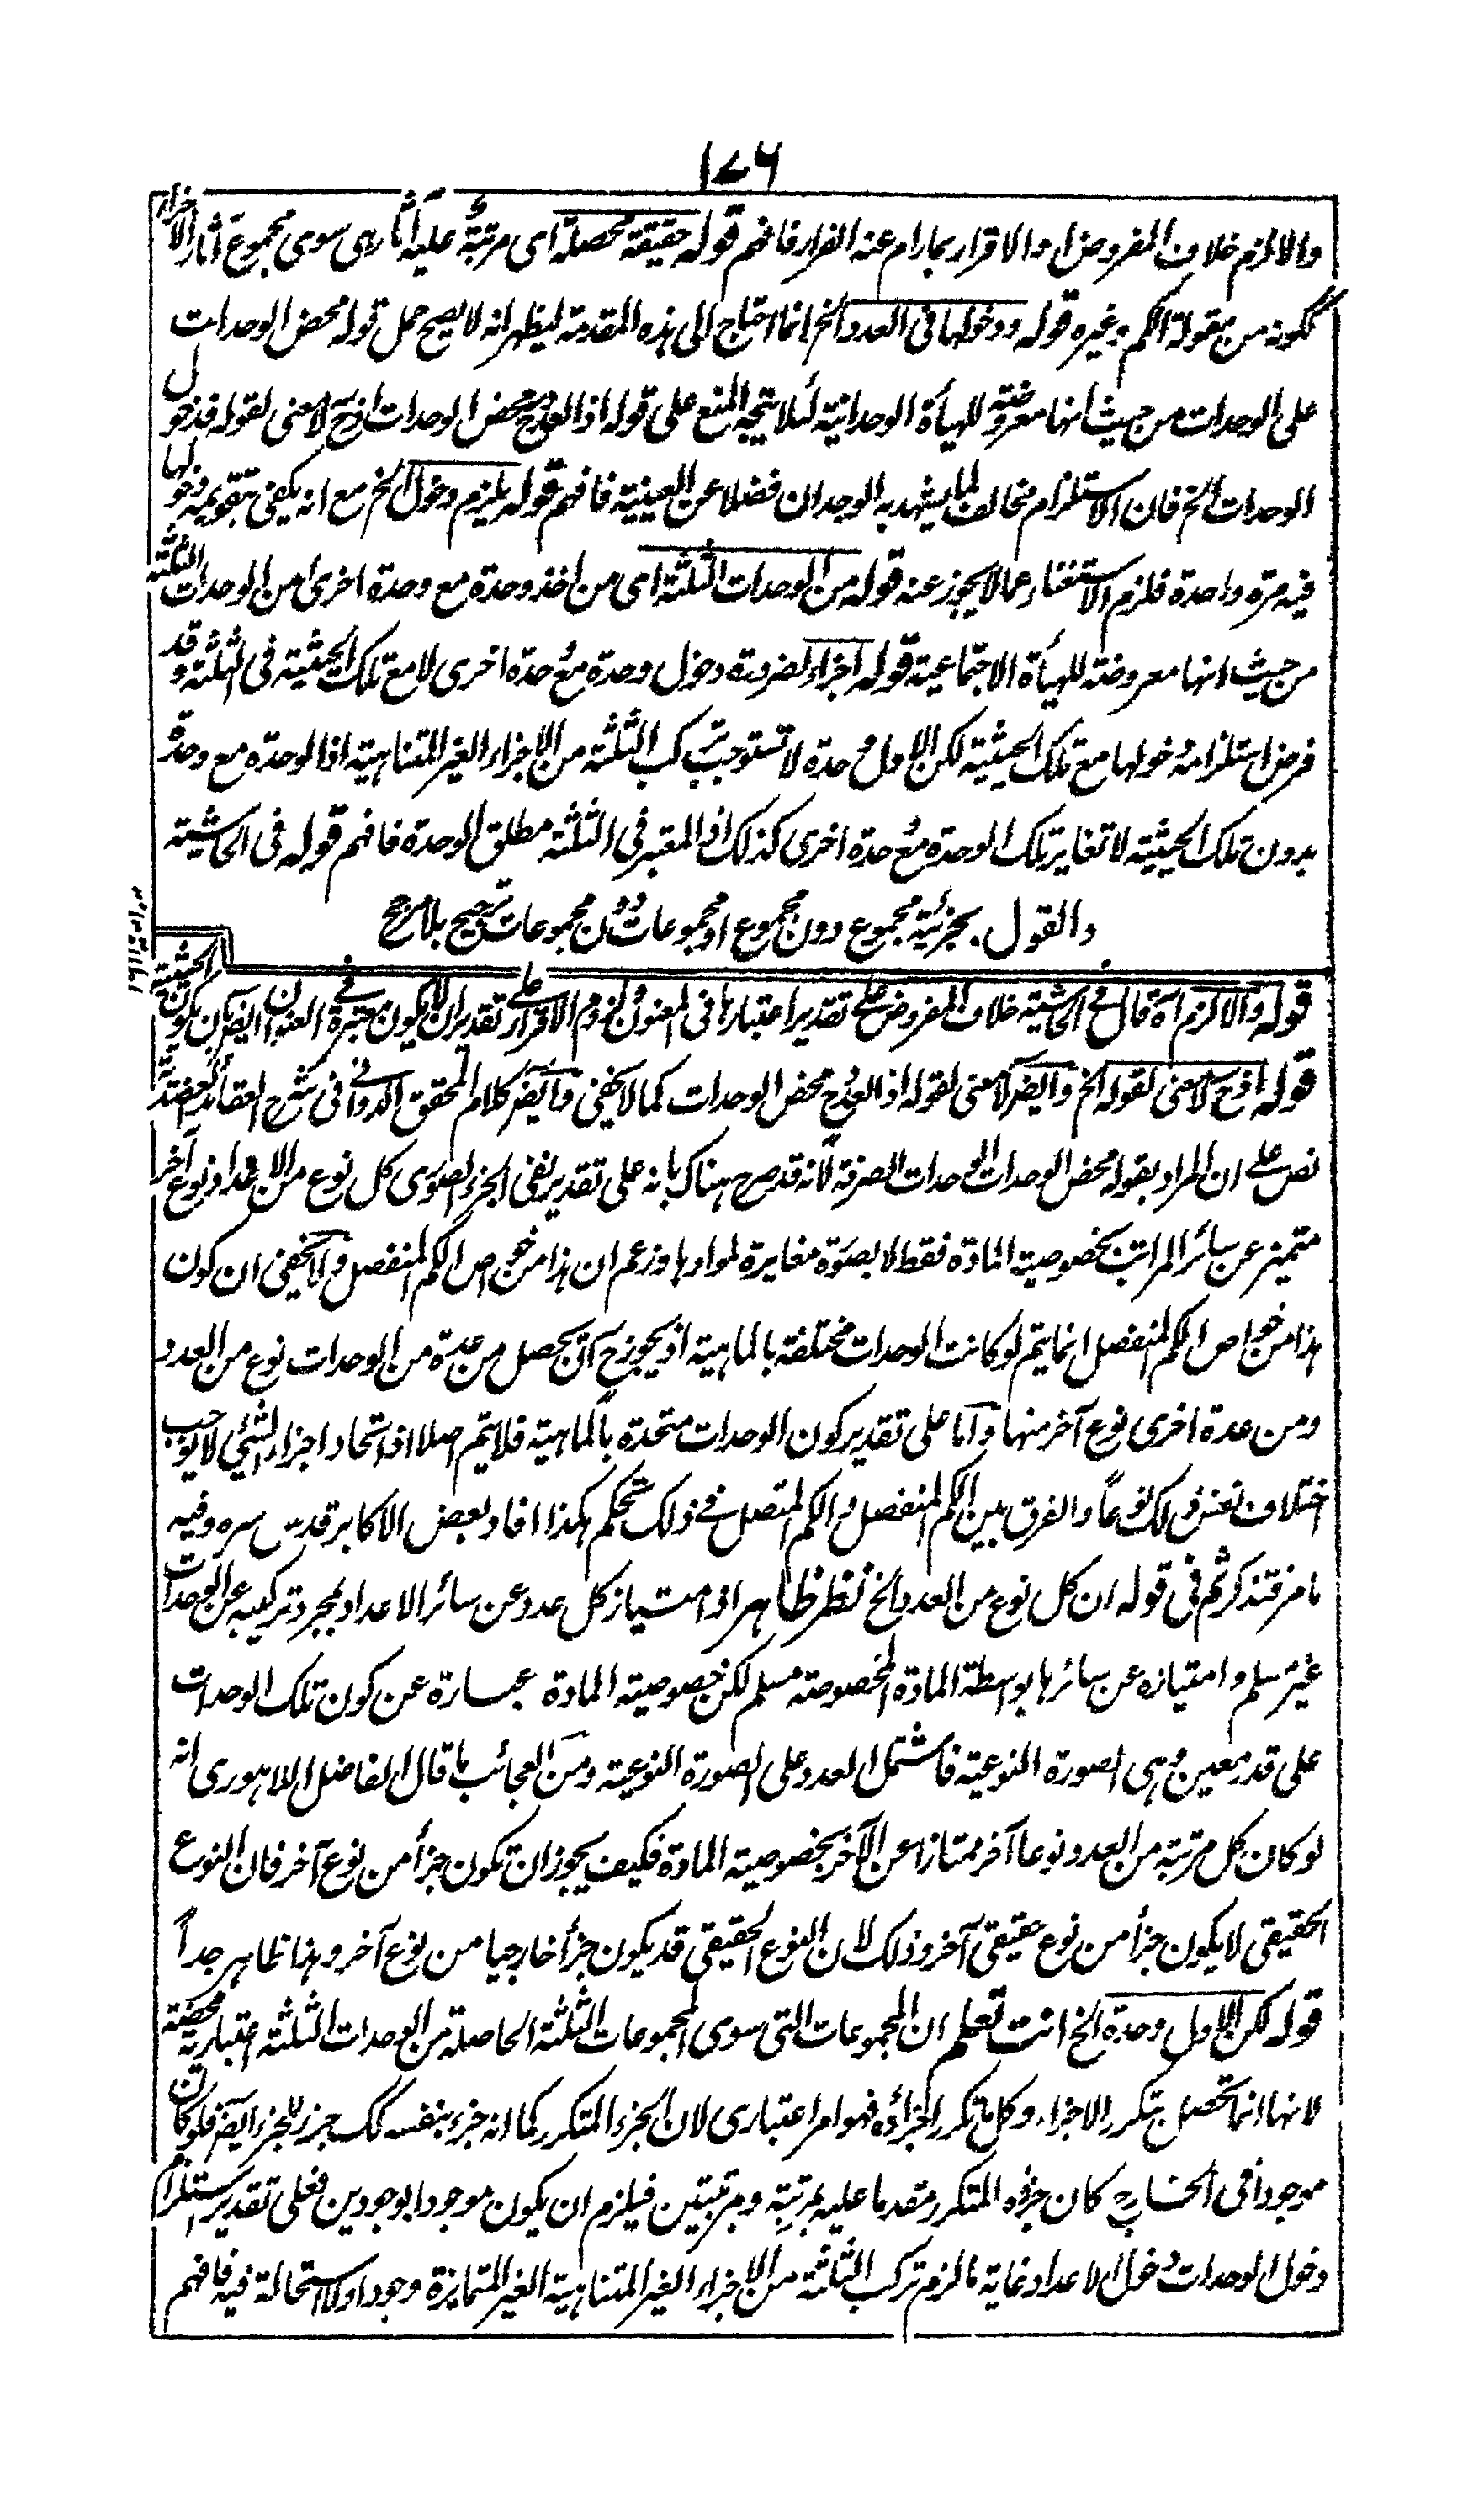 ١٧٦
والا لزم خلاف المفروض او الاقرار بما رام عنه الفرار فافهم قوله حقيقة محصلة اى مرتبة عليه آثار هى سوى مجموع آثار الاجزاء
ككونه من مقولة الكم وغيره قوله ودخولها فى العدد الخ انما احتاج الى هذه المقدمة ليظهر انه لا يصح حمل قوله محض الوحدات
على الوحدات من حيث انها معروضة للهيأة الوحدانية لئلا يتجه المنع على قوله اذ العدد ح محض الوحدات اذ ح لا معنى لقوله فدخول
الوحدات الخ فان الاستلزام مخالف لما يشهد به الوجدان فضلا عن العينية فافهم قوله يلزم دخول الخ مع انه يكفى تقويمه دخولها
فيه مرة واحدة فلزم الاستغناء عما لا يجوز عنه قوله من الوحدات الثلثة اى من اخذ وحدة مع وحدة اخرى من الوحدات الثلثة
من حيث انها معروضة للهيأة الاجتماعية قوله اجزاء لضرورة دخول وحدة مع وحدة اخرى لا مع تلك الحيثية فى الثلثة وقد
فرض استلزامه دخولها مع تلك الحيثية لكن الاول وحدة لا تستوجب تركب الثلثة من الاجزاء الغير المتناهية اذ الوحدة مع وحدة
بدون تلك الحيثية لا تغاير تلك الوحدة مع وحدة اخرى كذلك اذ المعتبر فى الثلثة مطلق الوحدة فافهم قوله فى الحاشية
والقول بجزئية مجموع دون مجموع او مجموعات دون مجموعات ترجيح بلا مرجح
قوله والا لزم آه قال فى الحاشية خلاف المفروض على تقدير اعتبارها فى المعنون ولزوم الاقرار على تقدير ان لا يكون معتبرة فى العنوان ايضا بان يكون الحيثية
قوله اذ ح لا معنى لقوله الخ وايضا لا معنى لقوله اذ العدد ح محض الوحدات كما لا يخفى وايضا كلام المحقق الدوانى فى شرح العقائد العضدية
نص على ان المراد بقوله محض الوحدات الوحدات الصرفة لانه قد صرح هناك بانه على تقدير نفى الجزء الصورى كل نوع من الاعداد نوع آخر
متميز عن سائر المراتب بخصوصية المادة فقط لا بصورة مغايرة لموادها وزعم ان هذا من خواص الكم المنفصل ولا يخفى ان كون
هذا من خواص الكم المنفصل انما يتم لو كانت الوحدات مختلفة بالماهية اذ يجوز ح ان يحصل من عدة من الوحدات نوع من العدد
ومن عدة اخرى نوع آخر منها واما على تقدير كون الوحدات متحدة بالماهية فلا يتم اصلا اذ اتحاد اجزاء الشئ لا يوجب
اختلاف نفس ذلك نوعاً والفرق بين الكم المنفصل والكم المتصل فى ذلك تحكم هكذا افاد بعض الاكابر قدس سره وفيه
ما مر فتذكر ثم فى قوله ان كل نوع من العدد الخ نظر ظاهر اذ امتياز كل عدد عن سائر الاعداد بمجرد تركيبه عن الوحدات
غير مسلم وامتيازه عن سائرها بواسطة المادة المخصوصة مسلم لكن خصوصية المادة عبارة عن كون تلك الوحدات
على قدر معين وهى الصورة النوعية فاشتمل العدد على الصورة النوعية ومن العجائب ما قال الفاضل اللاهورى انه
لو كان كل مرتبة من العدد نوعا آخر ممتازا عن الآخر بخصوصية المادة فكيف يجوز ان تكون جزأ من نوع آخر فان النوع
الحقيقى لا يكون جزأ من نوع حقيقى آخر وذلك لان النوع الحقيقى قد يكون جزأ خارجيا من نوع آخر وهذا ظاهر جداً
قوله لكن الاول وحدة الخ انت تعلم ان المجموعات التى سوى المجموعات الثلثة الحاصلة من الوحدات الثلثة اعتبارية محضة
لانها انما تحصل بتكرر الاجزاء وكل ما تكرر اجزائه فهو امر اعتبارى لان الجزء المتكرر كما انه جزء بنفسه كك جزء للجزء ايضا فلو كان
موجودا فى الخارج كان جزؤه المتكرر مقدما عليه بمرتبة وبمرتبتين فيلزم ان يكون موجودا بوجودين فعلى تقدير استلزام
دخول الوحدات دخول الاعداد غاية ما لزم تركب الثلثة من الاجزاء الغير المتناهية الغير المتمايزة وجودا ولا استحالة فيه فافهم